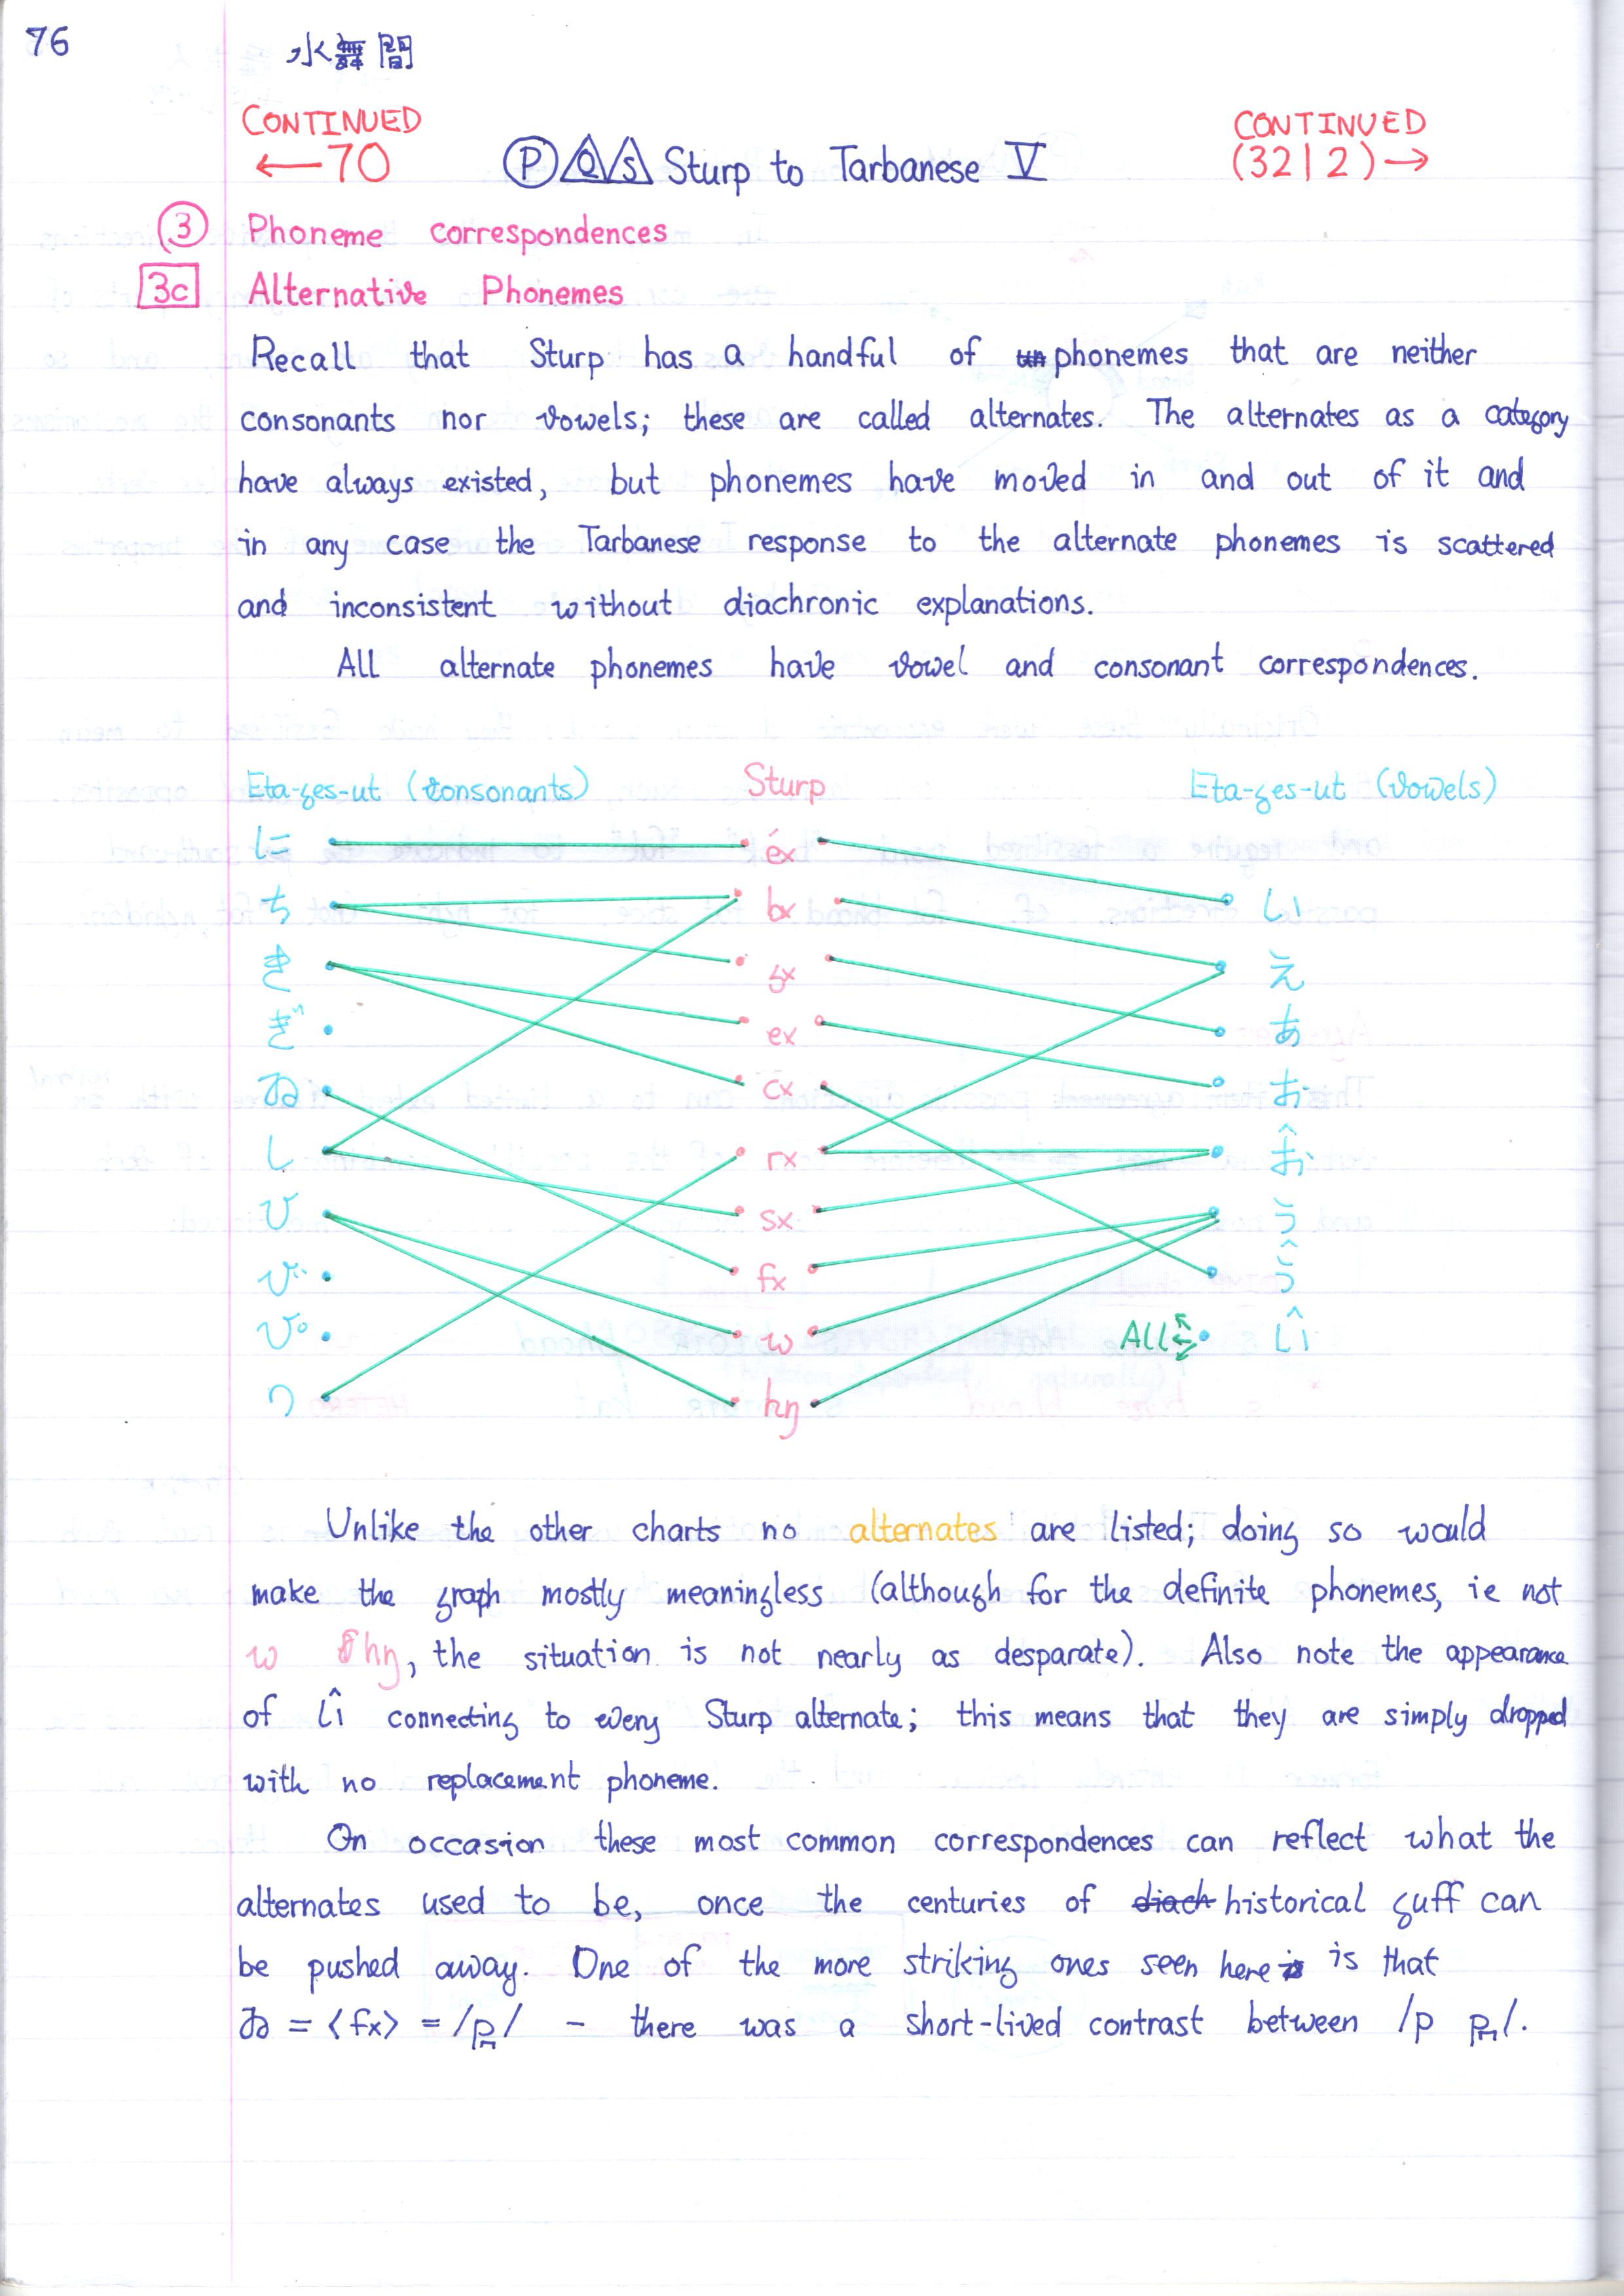 76
水舞間
CONTINUED
←70
Ⓟ Q S Sturp to Tarbanese V
CONTINUED
(32|2)→
③ Phoneme correspondences
3c Alternative Phonemes
Recall that Sturp has a handful of phonemes that are neither
consonants nor vowels; these are called alternates. The alternates as a category
have always existed, but phonemes have moved in and out of it and
in any case the Tarbanese response to the alternate phonemes is scattered
and inconsistent without diachronic explanations.
All alternate phonemes have vowel and consonant correspondences.
Eta-ges-ut (consonants) Sturp Eta-ges-ut (vowels)
に éx
ち bx い
き gx え
ぎ ex あ
ゐ cx お
し rx お̂
ひ sx う
び fx う̂
ぴ w All い̂
つ hŋ
Unlike the other charts no alternates are listed; doing so would
make the graph mostly meaningless (although for the definite phonemes, ie not
w hŋ, the situation is not nearly as desparate). Also note the appearance
of い̂ connecting to every Sturp alternate; this means that they are simply dropped
with no replacement phoneme.
On occasion these most common correspondences can reflect what the
alternates used to be, once the centuries of diach historical guff can
be pushed away. One of the more striking ones seen here is that
ゐ = ⟨fx⟩ = /p̺/ – there was a short-lived contrast between /p p̺/.